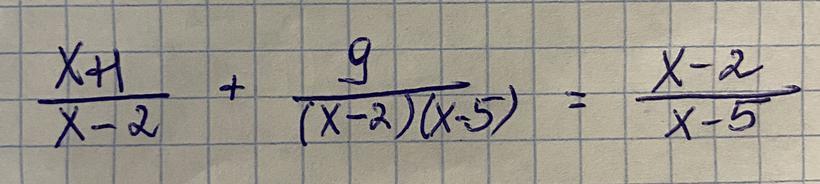 (x+1)/(x-2) + 9/((x-2)(x-5)) = (x-2)/(x-5)